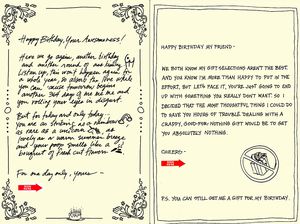 Happy Birthday, Your Awesomeness!
Here we go again, another birthday
and another round of and
Listen up, this won't happen again for
a whole year, so about the love while
you can 'cause tomorrow begins
another 364 days of me and
you rolling your eyes in disgust.
But for today and only today
you are as as a
as rare as a unicorn &
lovely as a warm summer breeze
and your poop smells like a
bouquet of fresh cut flowers.
For one day only, yours ~
HAPPY BIRTHDAY MY FRIEND -
WE BOTH KNOW MY GIFT-SELECTIONS AREN'T THE BEST.
AND YOU KNOW I'M MORE THAN HAPPY TO PUT IN THE
EFFORT, BUT LET'S FACE IT, YOU'RE JUST GOING TO END
UP WITH SOMETHING YOU REALLY DON'T WANT. SO I
DECIDED THAT THE MOST THOUGHTFUL THING I COULD DO
TO SAVE YOU HOURS OF TROUBLE DEALING WITH A
CRAPPY, GOOD-FOR-NOTHING GIFT WOULD BE TO GET
YOU ABSOLUTELY NOTHING.
CHEERS! -
P.S. YOU CAN STILL GET ME A GIFT FOR MY BIRTHDAY.